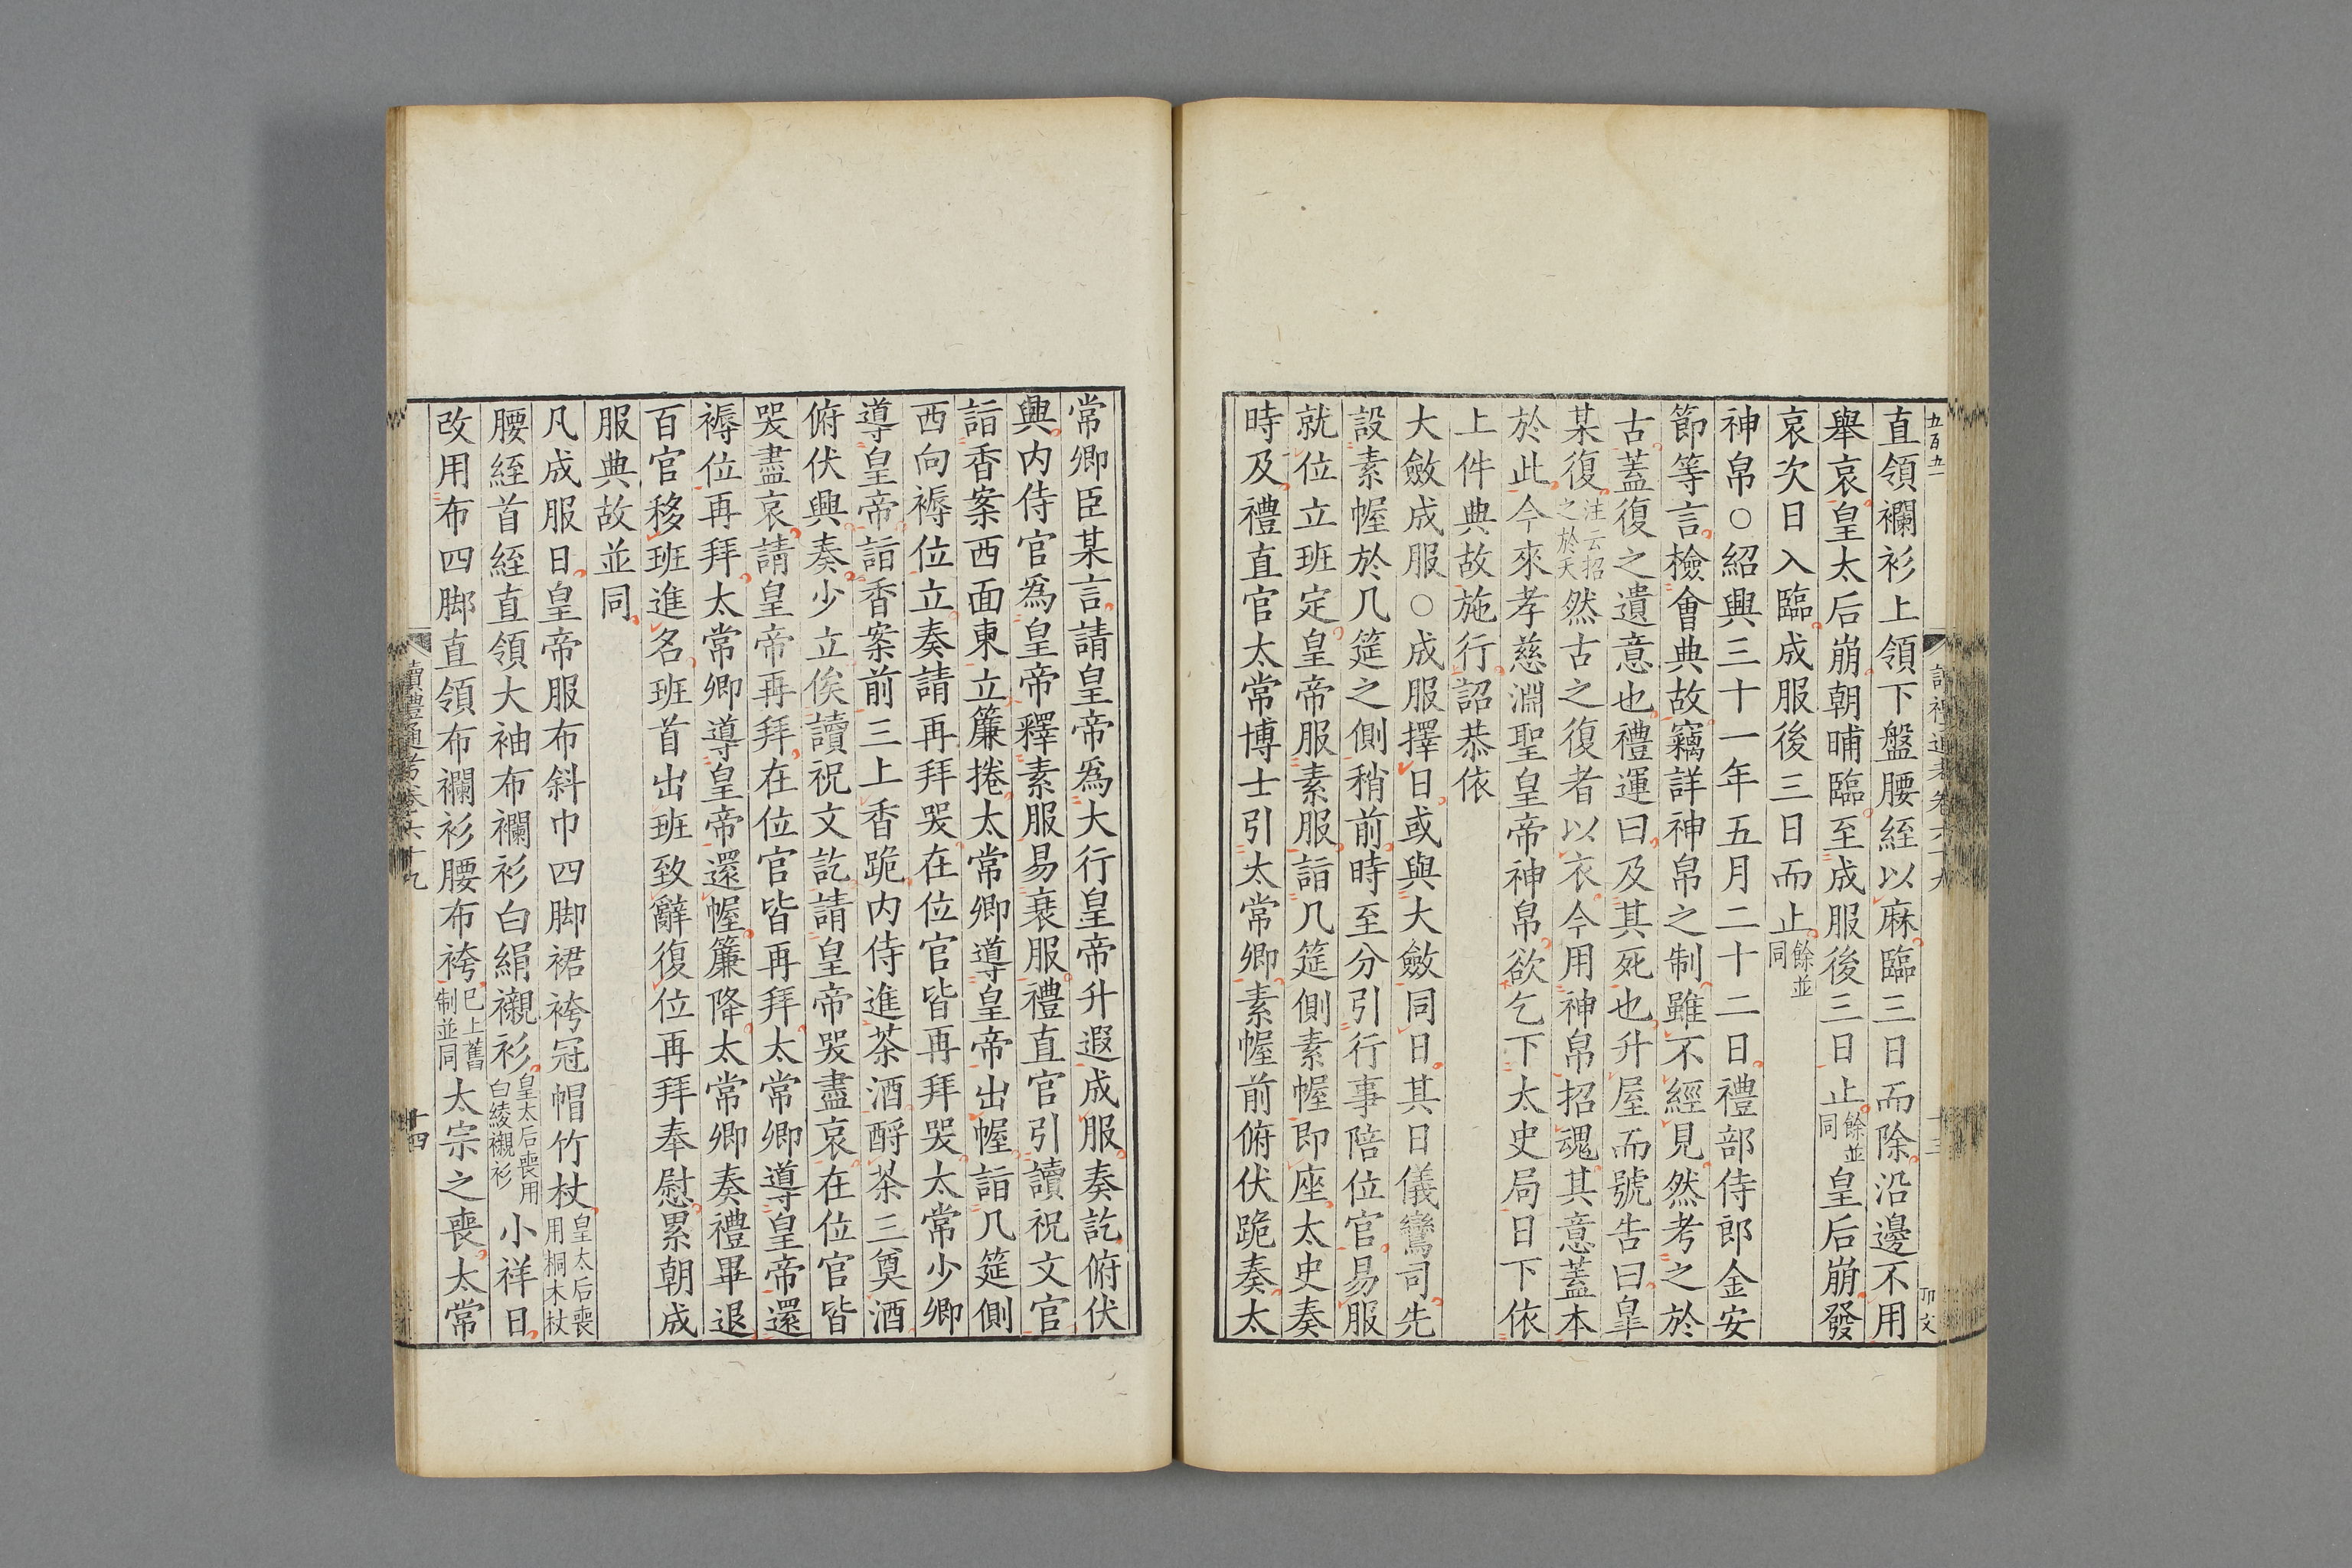 五百五一
直領襴衫上領下盤腰絰以麻臨三日而除沿邊不用
舉哀皇太后崩朝晡臨至成服後三日止餘並同皇后崩發
哀次日入臨成服後三日而止餘並同
神帛○紹興三十一年五月二十二日禮部侍郎金安
節等言檢會典故竊詳神帛之制雖不經見然考之於
古蓋復之遺意也禮運曰及其死也升屋而號告曰皐
某復注云招之於天然古之復者以衣今用神帛招魂其意蓋本
於此今來孝慈淵聖皇帝神帛欲乞下太史局日下依
上件典故施行詔恭依
大斂成服○成服擇日或與大斂同日其日儀鸞司先
設素幄於几筵之側稍前時至分引行事陪位官易服
就位立班定皇帝服素服詣几筵側素幄即座太史奏
時及禮直官太常博士引太常卿素幄前俯伏跪奏太
常卿臣某言請皇帝爲大行皇帝升遐成服奏訖俯伏
興內侍官爲皇帝釋素服易衰服禮直官引讀祝文官
詣香案西面東立簾捲太常卿導皇帝出幄詣几筵側
西向褥位立奏請再拜哭在位官皆再拜哭太常少卿
導皇帝詣香案前三上香跪內侍進茶酒酹茶三奠酒
俯伏興奏少立俟讀祝文訖請皇帝哭盡哀在位官皆
哭盡哀請皇帝再拜在位官皆再拜太常卿導皇帝還
褥位再拜太常卿導皇帝還幄簾降太常卿奏禮畢退
百官移班進名班首出班致辭復位再拜奉慰累朝成
服典故並同
凡成服日皇帝服布斜巾四脚裙袴冠帽竹杖皇太后喪用桐木杖
腰絰首絰直領大袖布襴衫白絹襯衫皇太后喪用白綾襯衫小祥日
改用布四脚直領布襴衫腰布袴已上舊制並同太宗之喪太常
讀禮通考卷六十九
十四